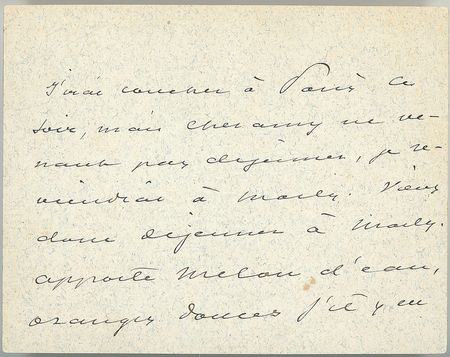 J'irai coucher à Paris ce
soir, mais Cheramy ne ve-
nant pas déjeuner, je re-
viendrai à Marly. Viens
donc déjeuner à Marly.
apporte melon d'eau,
oranges douces s'il y en